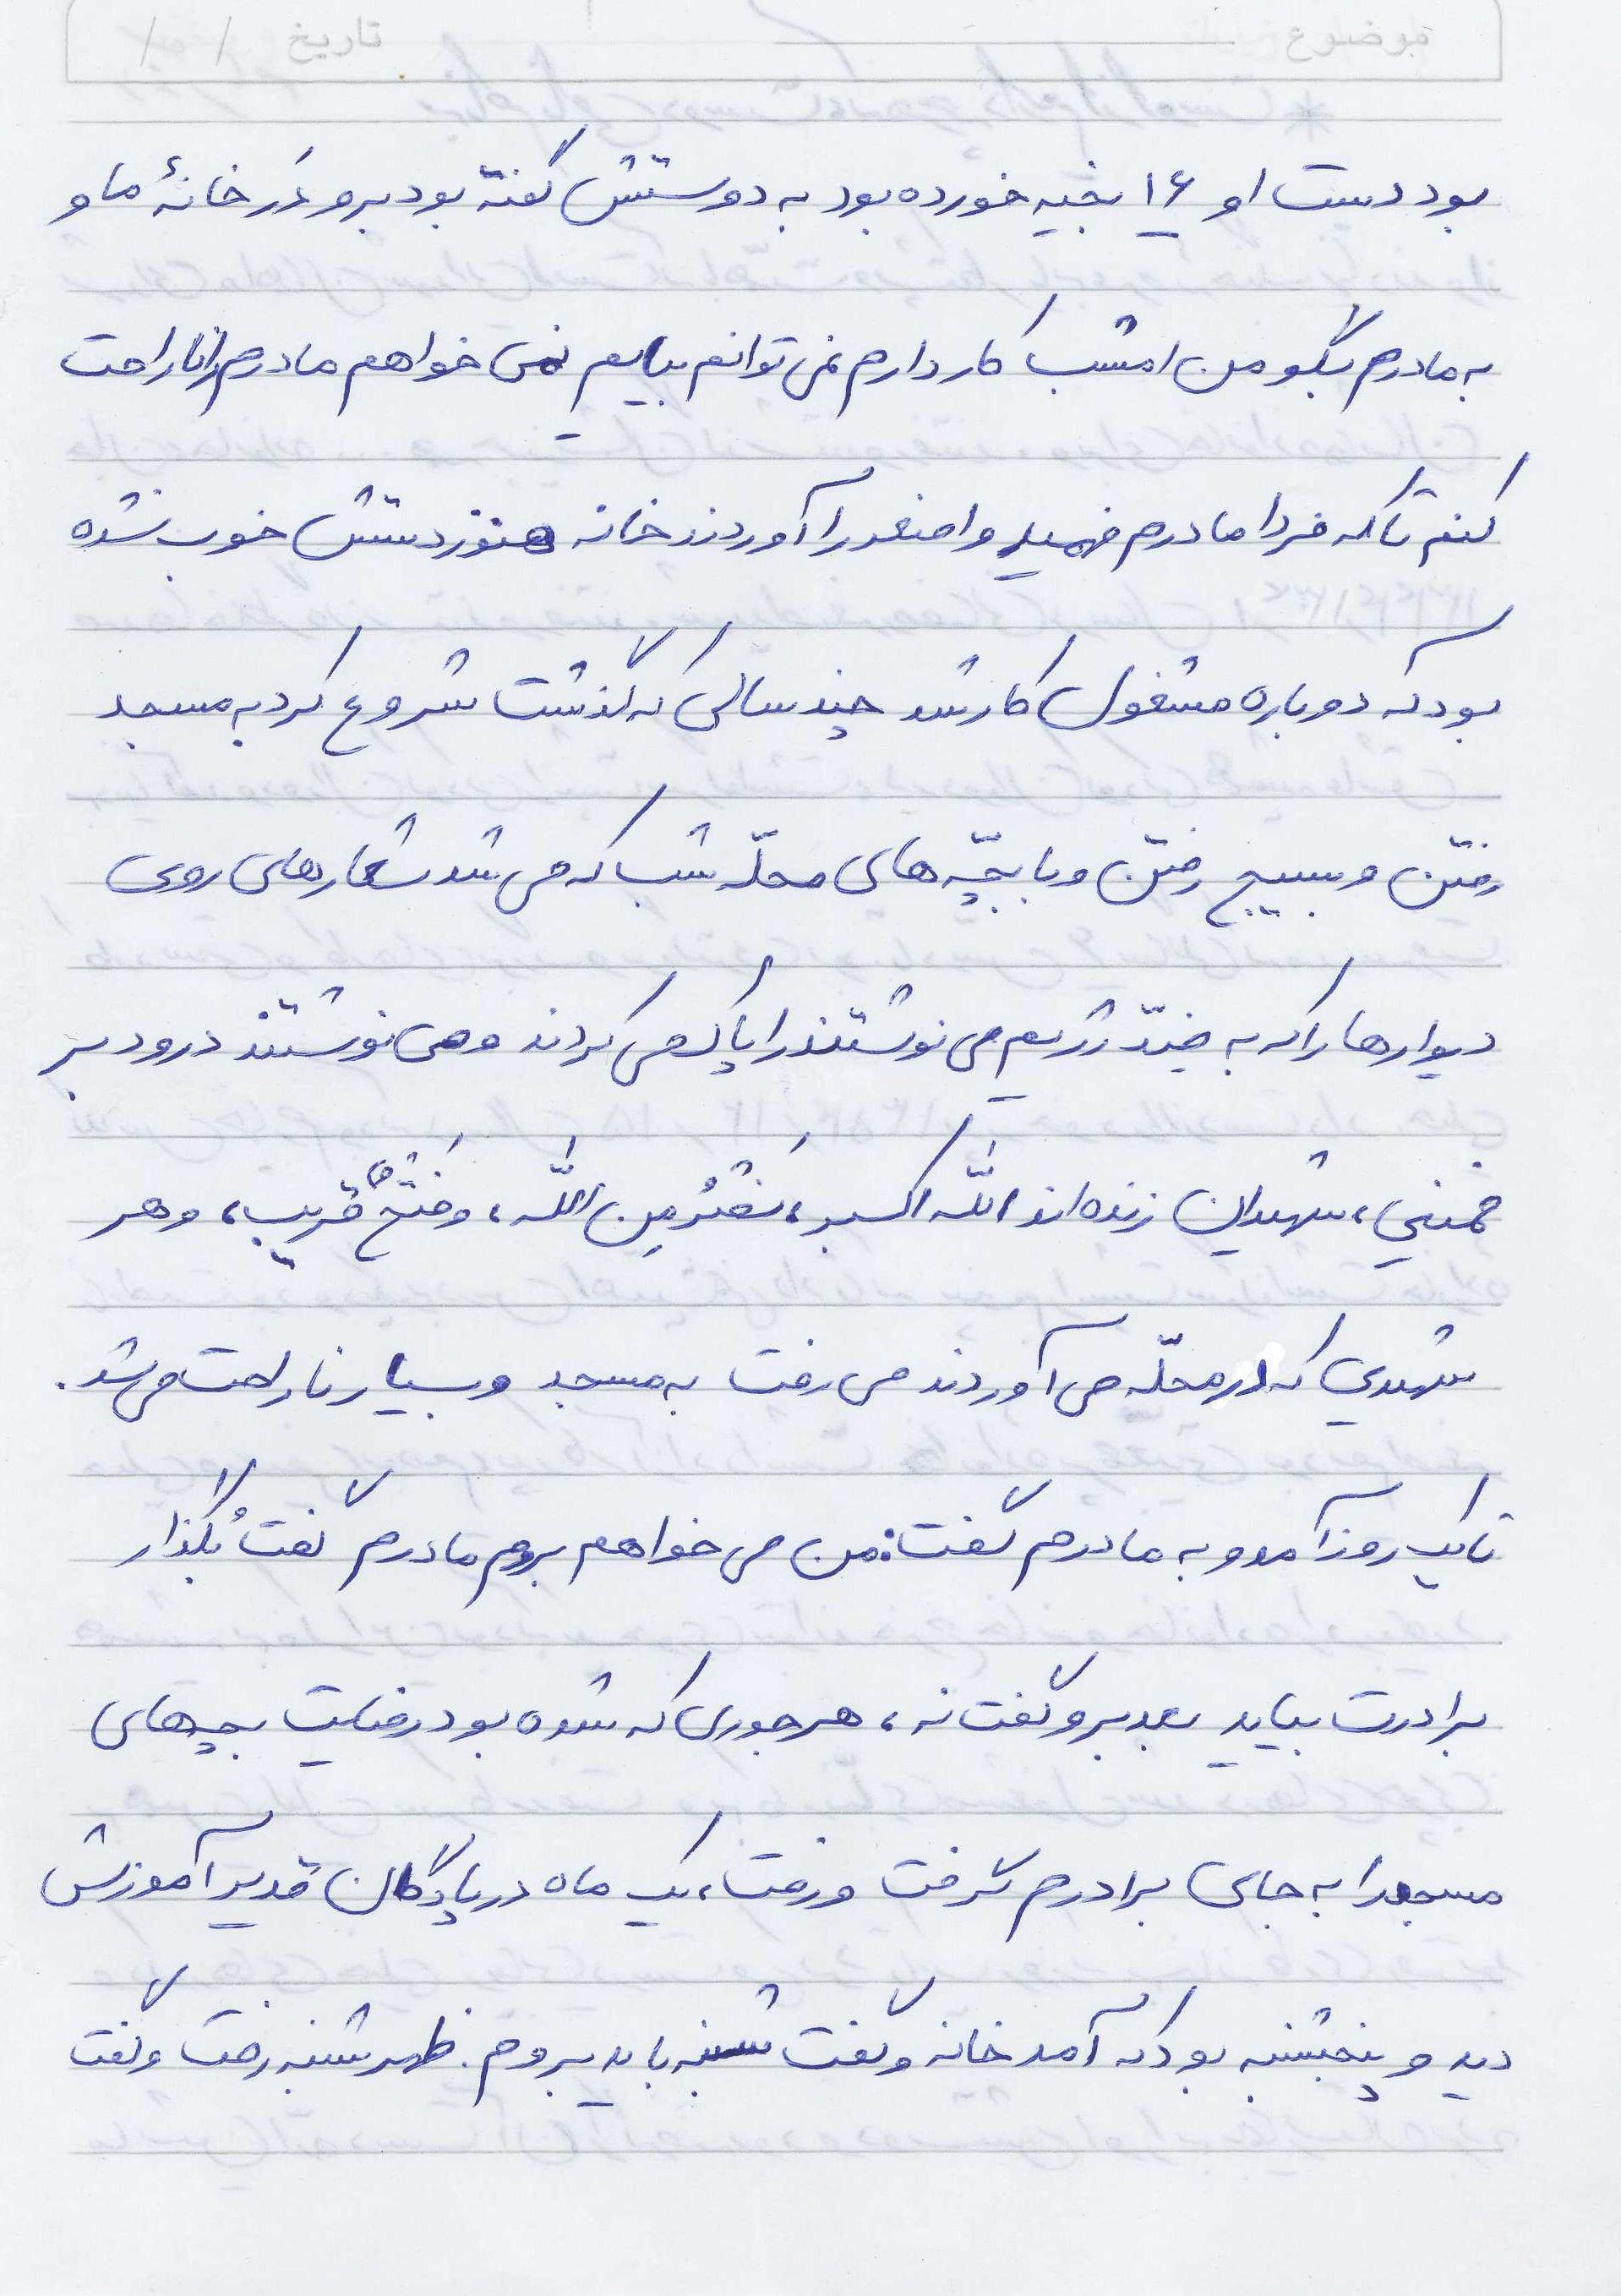 بود دست او ۱۶ بخیه خورده بود به دوستش گفته بود برو در خانهٔ ما و
به مادرم بگو من امشب کار دارم نمی توانم بیایم نمی خواهم مادرم را ناراحت
کنم تا که فردا مادرم فهمید و اصغر را آوردند خانه هنوز دستش خوب نشده
بود که دوباره مشغول کار شد چند سالی که گذشت شروع کرد به مسجد
رفتن و بسیج رفتن و با بچّه های محلّه شب که می شد شعارهای روی
دیوارها را که به ضدّ رژیم می نوشتند را پاک می کردند و می نوشتند درود بر
خمینی، شهیدان زنده اند الله اکبر، نَصْرُ مِن الله، وَ فَتْحٌ قریب، و هر
شهیدی که در محلّه می آوردند می رفت به مسجد و بسیار ناراحت می شد.
تا یک روز آمد و به مادرم گفت: من می خواهم بروم مادرم گفت بُگذار
برادرت بیاید بعد برو گفت نه، هر جوری که شده بود رضایت بچه های
مسجد را به جای برادرم گرفت و رفت، یک ماه در پادگان قدیر آموزش
دید و پنجشنبه بود که آمد خانه و گفت شنبه باید بروم. ظهر شنبه رفت و گفت
موضوع
تاریخ / /